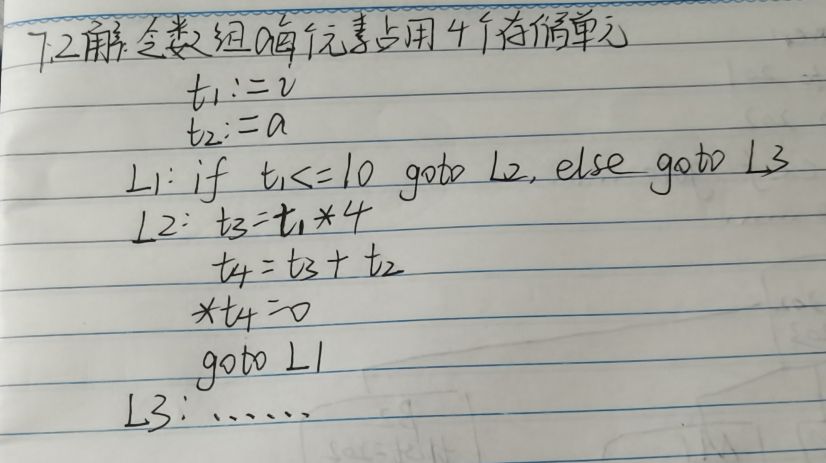 7.2解:令数组a每个元素占用4个存储单元
t1:=i
t2:=a
L1: if t1<=10 goto L2, else goto L3
L2: t3=t1*4
t4=t3+t2
*t4=0
goto L1
L3: ......